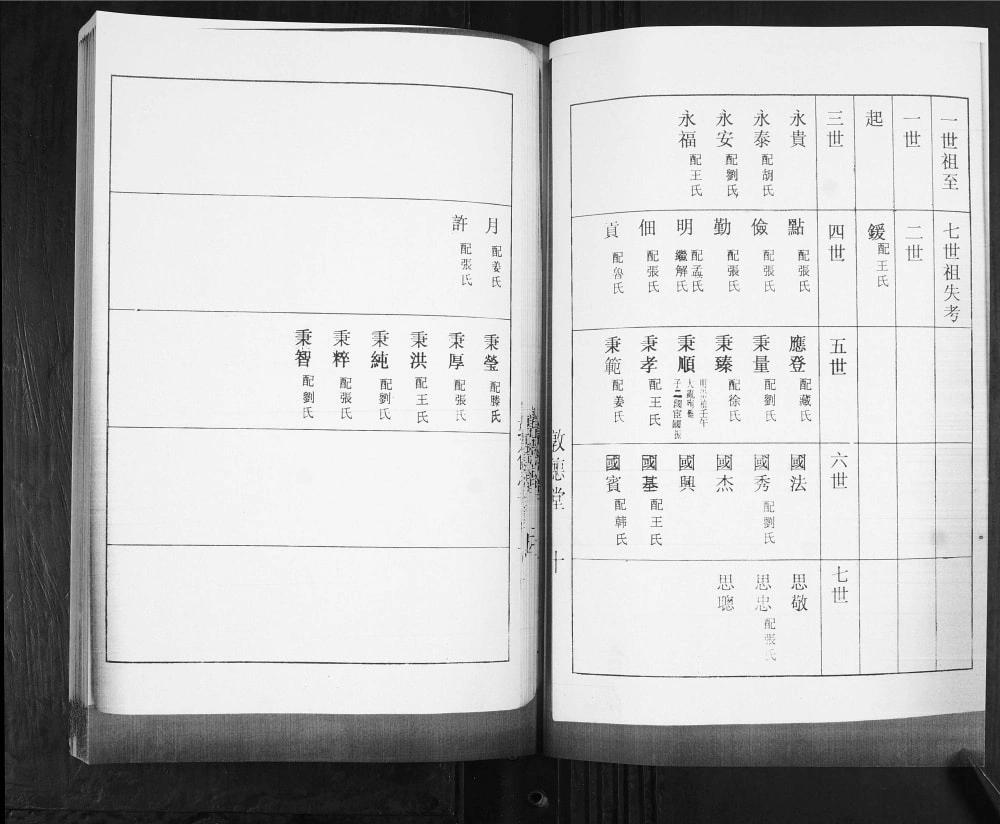 一世祖至七世祖失考
一世
二世
起
鍰 配王氏
三世
永貴
永泰 配胡氏
永安 配劉氏
永福 配王氏
四世
點 配張氏
儉 配張氏
勤 配張氏
明 配孟氏 繼解氏
佃 配張氏
貢 配魯氏
五世
應登 配藏氏
秉量 配劉氏
秉臻 配徐氏
秉順
秉孝 配王氏
秉範 配姜氏
六世
國法
國秀 配劉氏
國杰
國興
國基 配王氏
國賓 配韩氏
七世
思敬
思忠 配張氏
思聰
敦德堂
十
月 配姜氏
許 配張氏
秉瑩 配滕氏
秉厚 配張氏
秉洪 配王氏
秉純 配劉氏
秉粹 配張氏
秉智 配劉氏